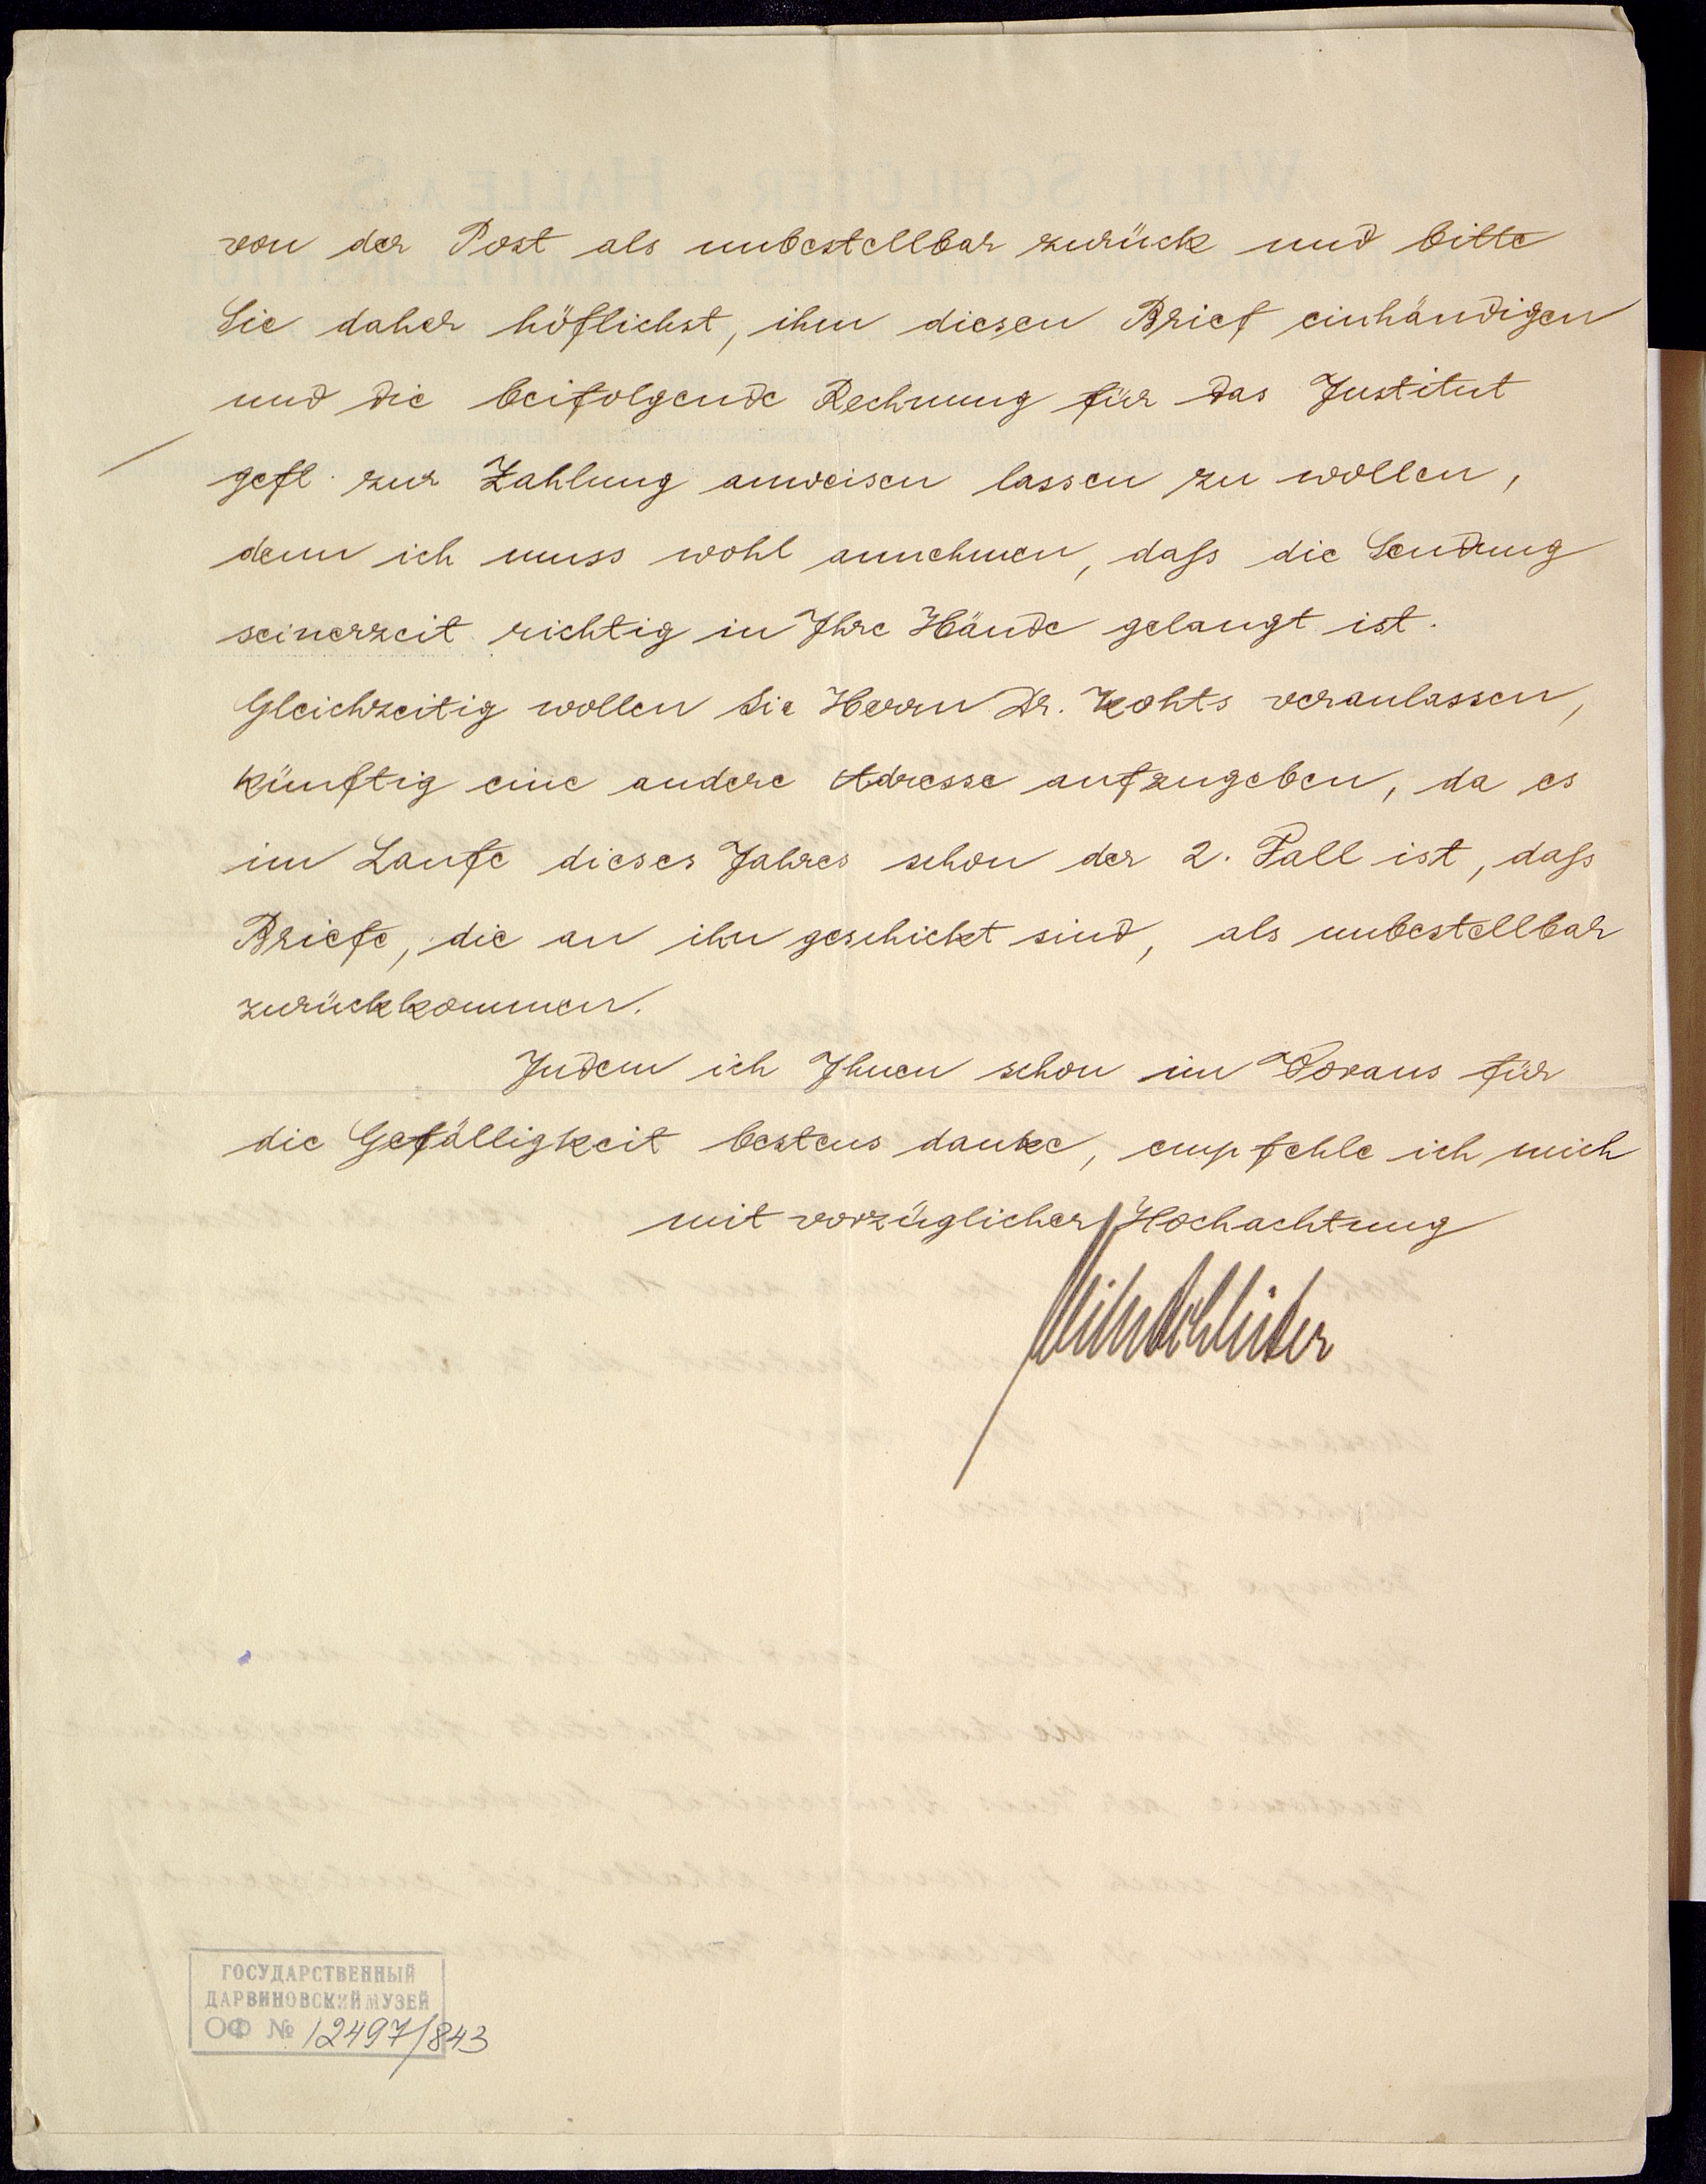 von der Post als unbestellbar zurück und bitte
Sie daher höflichst, ihm diesen Brief einhändigen
und die beifolgende Rechnung für das Institut
gefl. zur Zahlung anweisen lassen zu wollen,
denn ich muss wohl annehmen, daſs die Sendung
seinerzeit richtig in Ihre Hände gelangt ist.
Gleichzeitig wollen Sie Herrn Dr. Kohts veranlassen,
künftig eine andere Adresse aufzugeben, da es
im Laufe dieses Jahres schon der 2. Fall ist, daſs
Briefe, die an ihn geschickt sind, als unbestellbar
zurückkommen.
Indem ich Ihnen schon im Voraus für
die Gefälligkeit bestens danke, empfehle ich mich
mit vorzüglicher Hochachtung
Wilh Schlüter
ГОСУДАРСТВЕННЫЙ
ДАРВИНОВСКИЙ МУЗЕЙ
ОФ № 12497/843